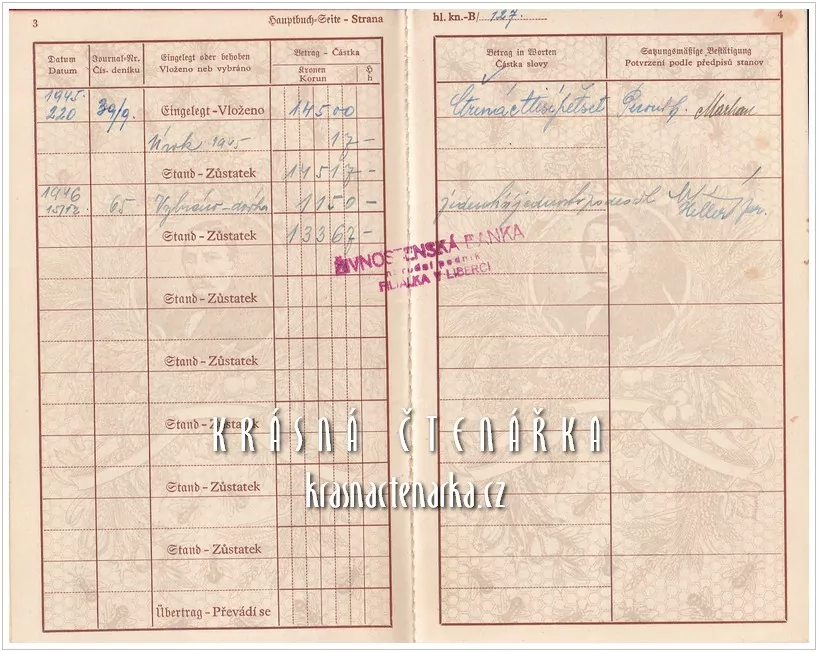 3
Hauptbuch-Seite - Strana
hl. kn.-B/ 127.
4
Datum
Datum
Journal-Nr.
Čís. deníku
Eingelegt oder behoben
Vloženo neb vybráno
Betrag - Částka
Kronen
Korun
H
h
Betrag in Worten
Částka slovy
Satzungsmäßige Bestätigung
Potvrzení podle předpisů stanov
1945
220 39/9. Eingelegt - Vloženo 14500
Marhan
Úrok 1945 17 -
Stand - Zůstatek 14517 -
1946
65 1150 -
Heller
Stand - Zůstatek 13367 -
ŽIVNOSTENSKÁ BANKA
národní podnik
FILIÁLKA V LIBERCI
Stand - Zůstatek
Stand - Zůstatek
Stand - Zůstatek
KRÁSNÁ ČTENÁŘKA
Stand - Zůstatek
krasnactenarka.cz
Stand - Zůstatek
Übertrag - Převádí se